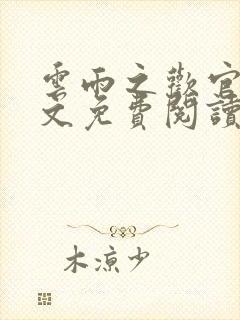 雲雨之歡官
文免費閱讀
木涼少